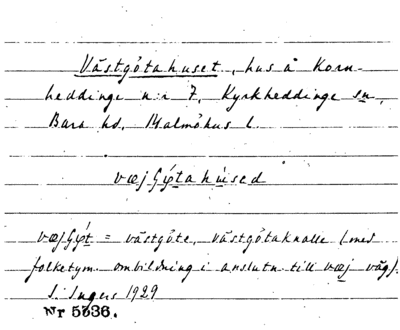 Västgötahuset, hus å Korn-
heddinge n:r 7, Kyrkheddinge sn,
Bara hd, Malmöhus l.
væjʃøtahused
væjʃøt = västgöte, västgötaknalle (med
folketym. ombildning i anslutn. till væj väg).
S. Ingers 1929
Nr 5536.